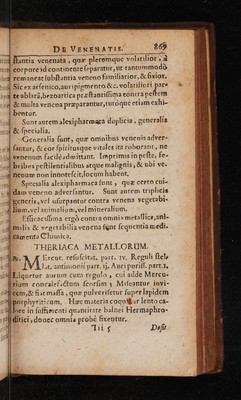 DE VENENATIS. 869
stantia venenata, quæ plerumque volatilior, à
corpore id continente separatur, ut tantummodò
remaneat substantia veneno familiarior, & fixior.
Sic ex arsenico, auripigmento &c. volatiliori par-
te ablata, bezoartica præstantissima contra pestem
& multa venena præparantur, tutóque etiam exhi-
bentur.
Sunt autem alexipharmaca duplicia, generalia
& specialia.
Generalia sunt, quæ omnibus venenis adver-
santur, & cor spiritusque vitales ita roborant, ne
venenum facilè admittant. Imprimis in peste, fe-
bribus pestilentialibus atque malignis, & ubi ve-
nenum non innotescit, locum habent.
Specialia alexipharmaca sunt, quæ certo cui-
dam veneno adversantur. Sunt autem triplicis
generis, vel usurpantur contra venena vegetabi-
lium, vel animalium, vel mineralium.
Efficacissima ergò contra omnia metallica, ani-
malia & vegetabilia venena sunt sequentia medi-
camenta Chimica.
THERIACA METALLORUM.
℞. Mercur. resuscitat. part. iv. Reguli stel-
lat. antimonii part. ij. Auri puriss. part. 1.
Liquetur aurum cum regulo, cui adde Mercu-
rium calefactum seorsim; Misceantur invi-
cem, & fiat massa, quæ pulverisetur super lapidem
porphyriticum. Hæc materia coquatur lento ca-
lore in sufficienti quantitate balnei Hermaphro-
ditici, donec omnia probè fixentur.
Iii 5 Dosis